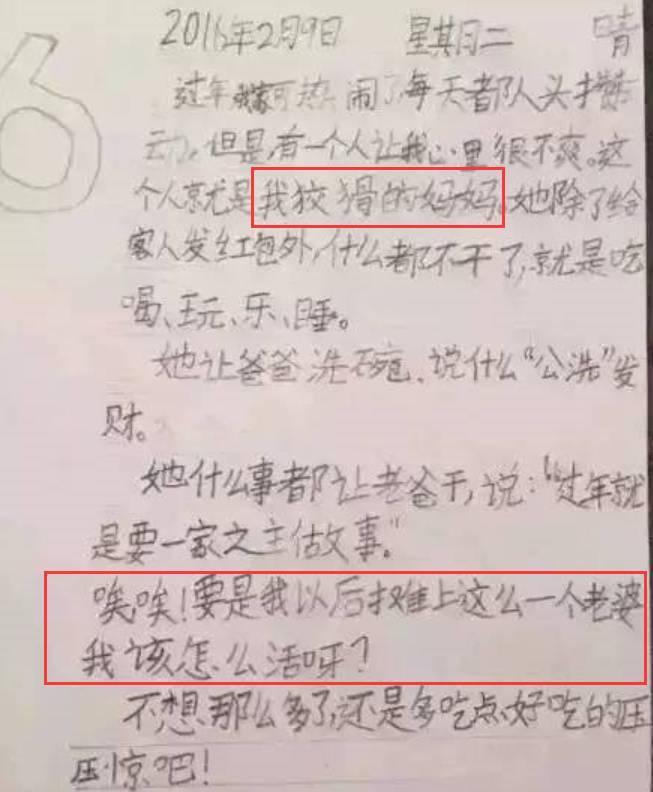 6
2016年2月9日 星其月二 晴
过年我家可热闹了每天都队头攒
动,但是,有一个人让我心里很不爽。这
个人就是我狡猾的妈妈,她除了给
客人发红包外,什么都不干了,就是吃
喝、玩、乐、睡。
她让爸爸洗碗,说什么“公洗”发
财。
她什么事都让老爸干,说:“过年就
是要一家之主做故事。”
唉,唉!要是我以后摊上这么一个老婆
我该怎么活呀?
不想那么多了,还是多吃点好吃的压
压惊吧!